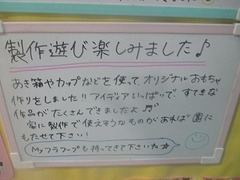 製作遊び楽しみました♪
あき箱やカップなどを使って オリジナルおもちゃ
作りをしました!! アイディアいっぱいで すてきな
作品がたくさんできましたよ♬
家に製作で使えそうなものがあれば 園に
もたせて下さい!
Myフラフープも持ってきて下さいね☆